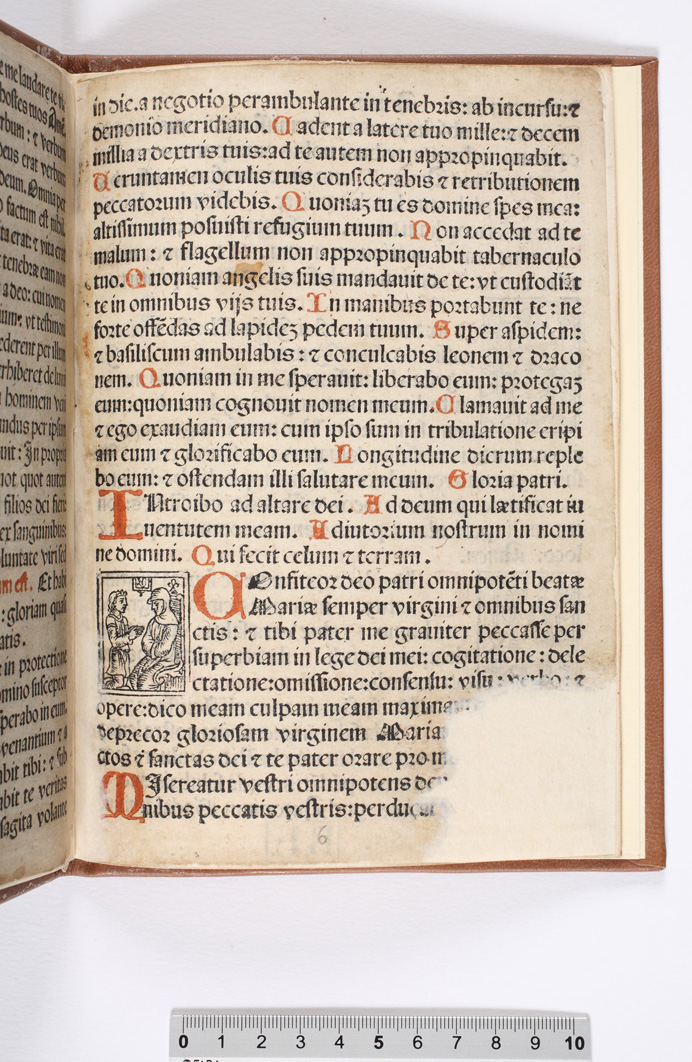 e me laudare te vi
hostes tuos Amē.
rbum: ⁊ verbum
deus erat verbum
deum. Omnia per
o factum est nihil.
ita erat: ⁊ vita erat
tenebræ eam non
a deo: cui nomen
ium: vt testimoni
ederent per illum
rhiberet de lumi
hominem veni
ndus per ipsum
uit: In propria
uot quot autem
filios dei fieri
ex sanguinibus
luntate viri sed
um est. Et habi
: gloriam quasi
atis.
e in protectione
omino susceptor
sperabo in eum.
venantium ⁊ a
abit tibi: ⁊ sub
abit te veritas
sagita volante
in die.a negotio perambulante in tenebris: ab incursu:⁊
demonio meridiano. Cadent a latere tuo mille:⁊ decem
millia a dextris tuis:ad te autem non appropinquabit.
Ueruntamen oculis tuis considerabis ⁊ retributionem
peccatorum videbis. Quoniaʒ tu es domine spes mea:
altissimum posuisti refugium tuum. Non accedat ad te
malum: ⁊ flagellum non appropinquabit tabernaculo
tuo. Quoniam angelis suis mandauit de te: vt custodiāt
te in omnibus vijs tuis. In manibus portabunt te: ne
forte offēdas ad lapideʒ pedem tuum. Super aspidem:
⁊ basiliscum ambulabis: ⁊ conculcabis leonem ⁊ draco
nem. Quoniam in me sperauit: liberabo eum: protegaʒ
eum:quoniam cognouit nomen meum. Clamauit ad me
⁊ ego exaudiam eum: cum ipso sum in tribulatione eripi
am eum ⁊ glorificabo eum. Longitudine dierum reple
bo eum: ⁊ ostendam illi salutare meum. Gloria patri.
INtroibo ad altare dei. Ad deum qui lætificat iu
uentutem meam. Adiutorium nostrum in nomi
ne domini. Qui fecit celum ⁊ terram.
COnfiteor deo patri omnipotēti beatæ
Mariæ semper virgini ⁊ omnibus san
ctis: ⁊ tibi pater me grauiter peccasse per
superbiam in lege dei mei: cogitatione: dele
ctatione:omissione:consensu: visu: verbo: ⁊
opere:dico meam culpam meam maximam
deprecor gloriosam virginem Maria
ctos ⁊ sanctas dei ⁊ te pater orare pro m
MIsereatur vestri omnipotens de
nibus peccatis vestris:perduca
6
0 1 2 3 4 5 6 7 8 9 10